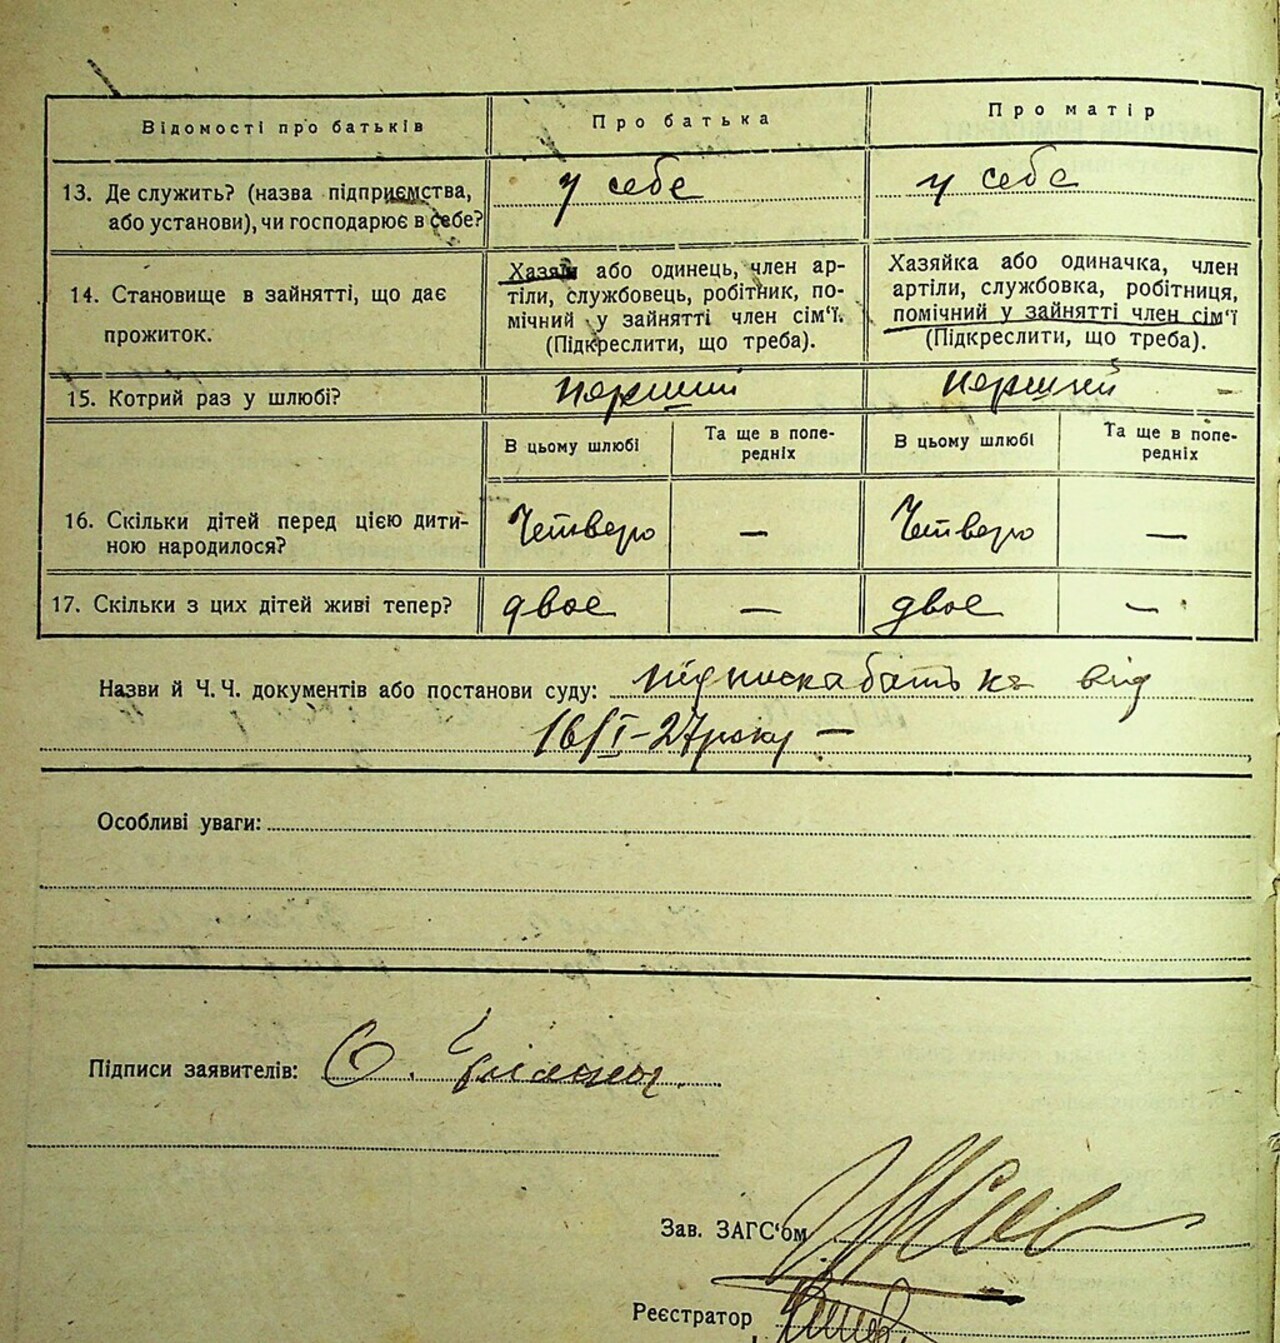 Відомості про батьків
Про батька
Про матір
13. Де служить? (назва підприємства,
або установи), чи господарює в себе?
у себе
у себе
14. Становище в зайнятті, що дає
прожиток.
Хазяїн або одинець, член ар-
тілі, службовець, робітник, по-
мічний у зайнятті член сім'ї.
(Підкреслити, що треба).
Хазяйка або одиначка, член
артіли, службовка, робітниця,
помічний у зайнятті член сім'ї
(Підкреслити, що треба).
15. Котрий раз у шлюбі?
перший
перший
В цьому шлюбі
Та ще в попе-
редніх
В цьому шлюбі
Та ще в попе-
редніх
16. Скільки дітей перед цією дити-
ною народилося?
Четверо
—
Четверо
—
17. Скільки з цих дітей живі тепер?
двое
—
двое
—
Назви й Ч. Ч. документів або постанови суду: підписка батька від
16/I-27 року —
Особливі уваги:
Підписи заявителів: О.
Зав. ЗАГС'ом
Реєстратор